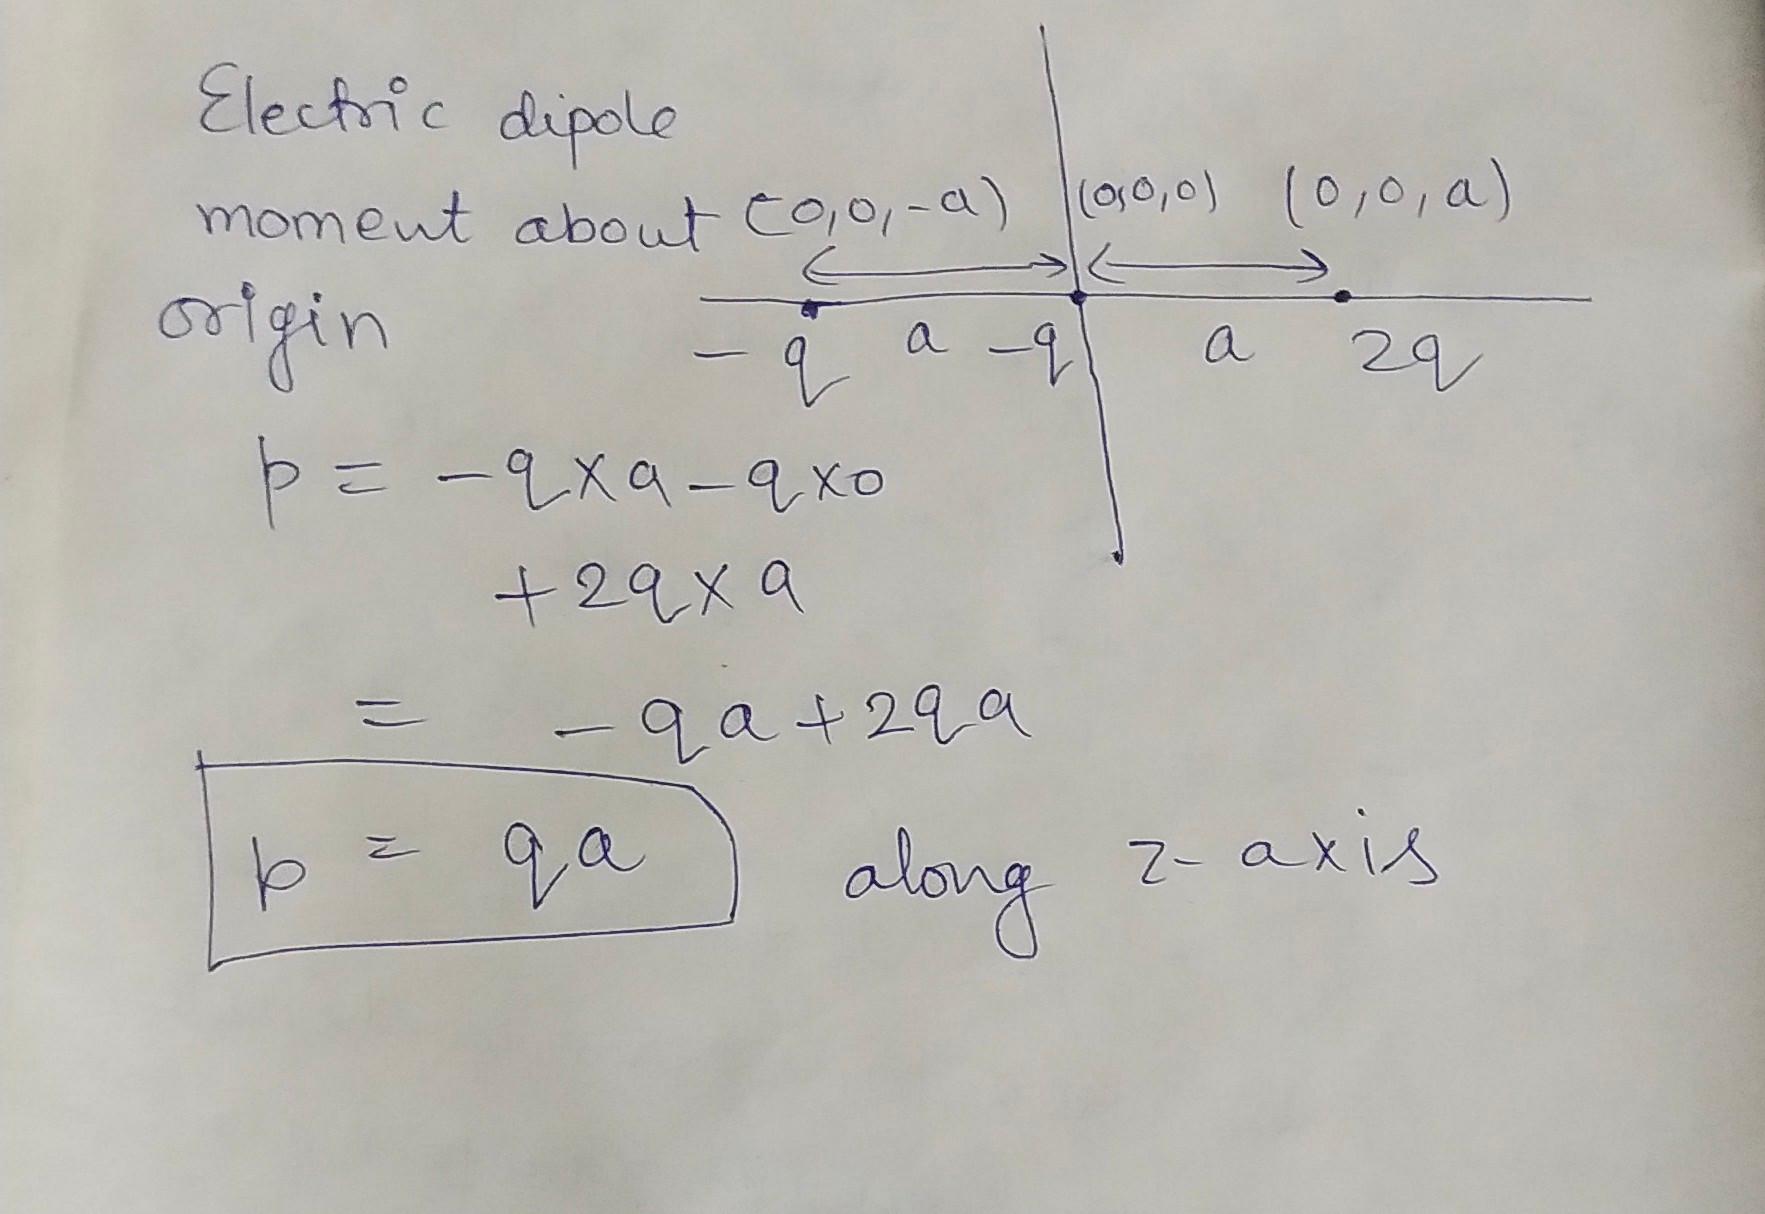 Electric dipole
moment about (0,0,-a) (0,0,0) (0,0,a)
origin
-q a -q a 2q
p = -q×a-q×0
+2q×a
= -qa+2qa
p = qa along z-axis